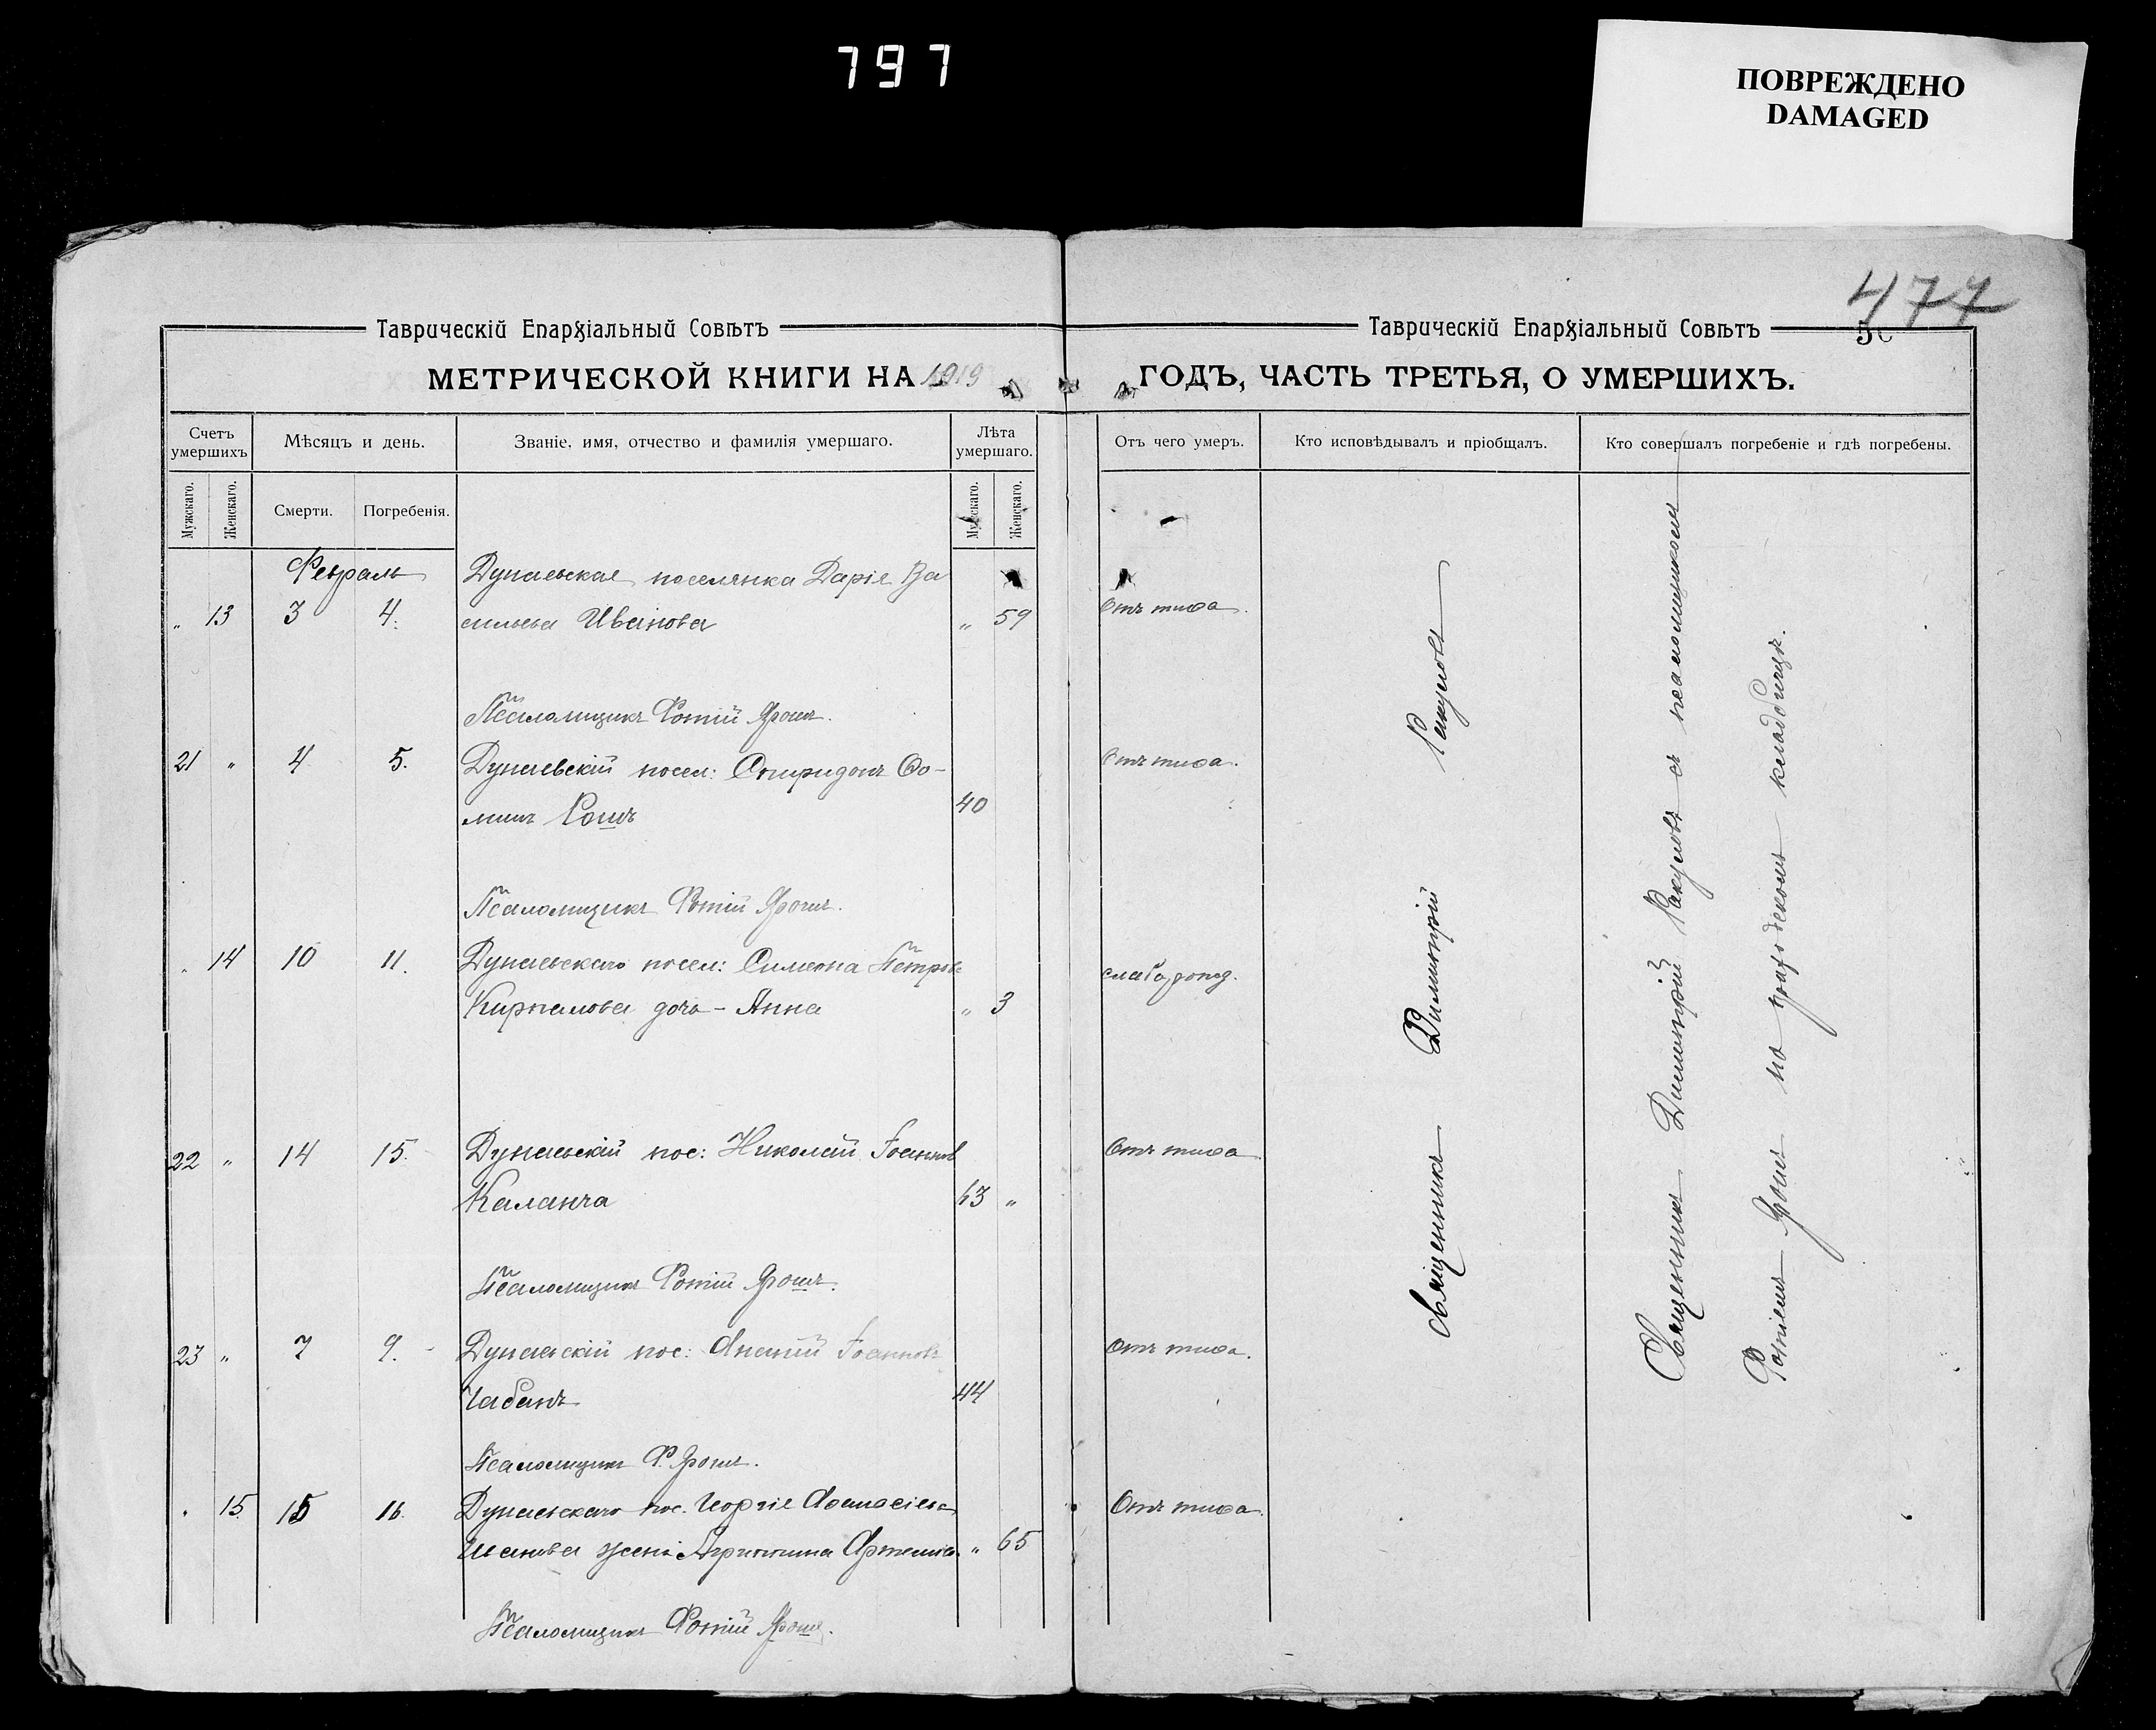 797
ПОВРЕЖДЕНО
DAMAGED
477
Таврическій Епархіальный Совѣтъ
МЕТРИЧЕСКОЙ КНИГИ НА 1919
Счетъ умершихъ
Мѣсяцъ и день.
Званіе, имя, отчество и фамилія умершаго.
Лѣта умершаго.
Мужскаго.
Женскаго.
Смерти.
Погребенія.
Мужскаго.
Женскаго.
Февраль
Дунаевская поселянка Дарія Ва
„ 13 3 4. сильева Иванова „ 59
Псаломщикъ Фотій Ярошъ.
21 „ 4 5. Дунаевскій посел: Спиридонъ Ѳо-
минъ Рошъ 40
Псаломщикъ Фотій Ярошъ.
„ 14 10 11. Дунаевскаго посел: Симеона Петрова
дочь - Анна „ 3
22 „ 14 15. Дунаевскій пос: Николай Іоаннов
Каланча 63 „
Псаломщикъ Фотій Ярошъ.
23 „ 7 9. Дунаевскій пос: Іоаннов
Чабанъ 44
Псаломщикъ Ф. Ярошъ.
„ 15 15 16 Дунаевскаго пос. Георгія Аѳанасіева
жена Агриппина „ 65
Псаломщикъ Фотій Ярошъ.
Таврическій Епархіальный Совѣтъ
5
ГОДЪ, ЧАСТЬ ТРЕТЬЯ, О УМЕРШИХЪ.
Отъ чего умеръ.
Кто исповѣдывалъ и пріобщалъ.
Кто совершалъ погребеніе и гдѣ погребены.
Отъ тифа.
Отъ тифа.
Отъ тифа
Отъ тифа.
Отъ тифа.
Священникъ Димитрій Ракуловъ
Священникъ Димитрій Ракуловъ съ псаломщикомъ
Фотіемъ Ярошъ на приходскомъ кладбищѣ.